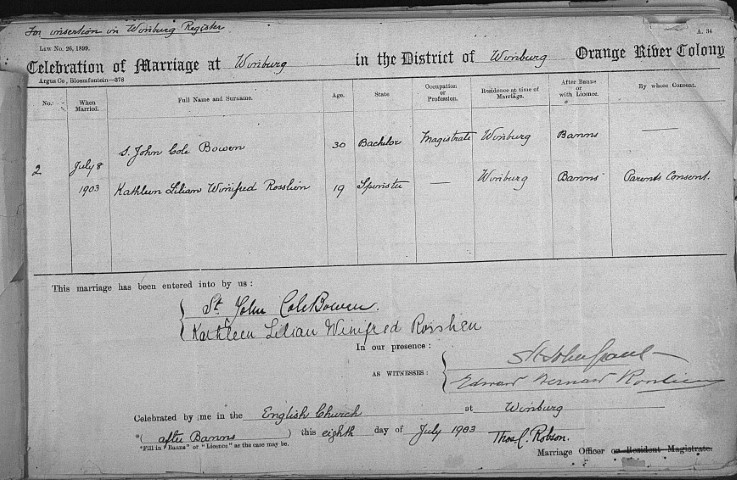 For insertion in Winburg Register
Law No. 26, 1899.
A. 34
Celebration of Marriage at Winburg in the District of Winburg Orange River Colony
Argus Co., Bloemfontein—878
No. When Married. Full Name and Surname. Age. State Occupation or Profession. Residence at time of Marriage. After Banns or with Licence. By whose Consent.
S. John Cole Bowen 30 Bachelor Magistrate Winburg Banns —
2 July 8
1903 Kathleen Lilian Winifred Rosslien 19 Spinster — Winburg Banns Parents Consent.
This marriage has been entered into by us :
St. John Cole Bowen.
Kathleen Lilian Winifred
In our presence :
AS WITNESSES :
Edward Bernard
Celebrated by me in the English Church at Winburg
*( after Banns ) this eighth day of July 1903 Thos. C. Robson.
*Fill in "Banns" or "Licence" as the case may be.
Marriage Officer or Resident Magistrate.